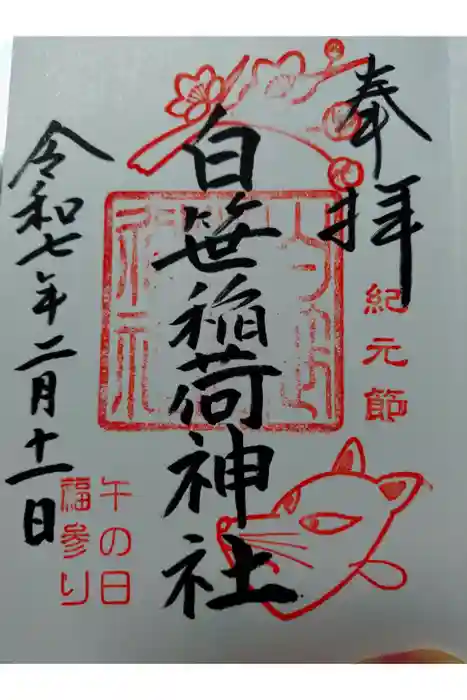 奉拝
紀元節
白笹稲荷神社
午の日
福参り
令和七年二月十一日